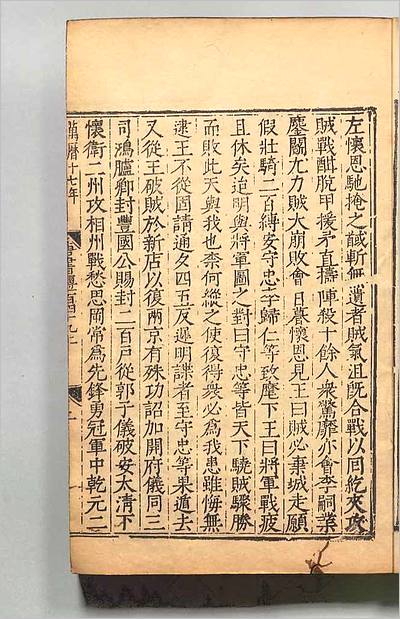 左懷恩馳掩之馘斬無遺者賊氣沮既合戰以回紇夾攻
賊戰酣脫甲援矛直擣陣殺十餘人衆驚靡亦會李嗣業
鏖鬭尤力賊大崩敗會日暮懷恩見王曰賊必棄城走願
假壯騎二百縛安守忠李歸仁等致麾下王曰將軍戰疲
且休矣迨明與將軍圖之對曰守忠等皆天下驍賊驟勝
而敗此天與我也柰何縱之使復得衆必爲我患雖悔無
逮王不從固請通夕四五反遲明諜者至守忠等果遁去
又從王破賊於新店以復兩京有殊功詔加開府儀同三
司鴻臚卿封豐國公賜封二百戶從郭子儀破安太清下
懷衛二州攻相州戰愁思岡常爲先鋒勇冠軍中乾元二
萬曆十七年
唐書傳百四九